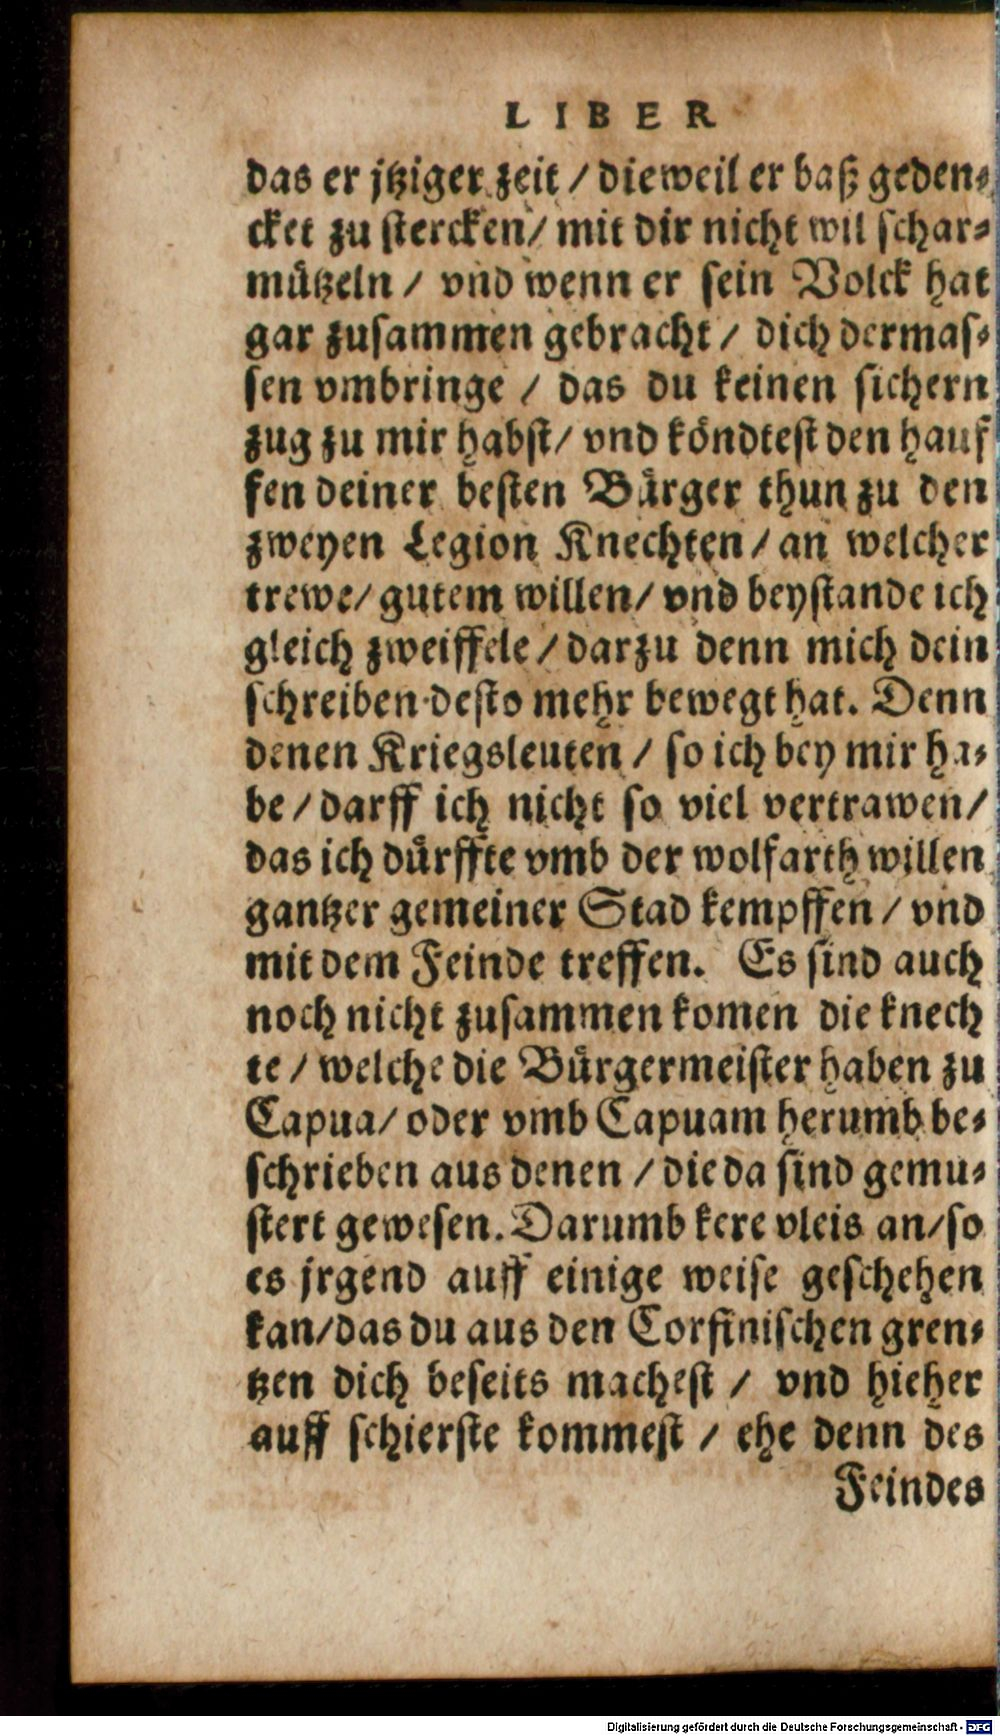 LIBER
das er jtziger zeit / dieweil er baß geden⸗
cket zu stercken / mit dir nicht wil schar⸗
mützeln / vnd wenn er sein Volck hat
gar zusammen gebracht / dich dermas⸗
sen vmbringe / das du keinen sichern
zug zu mir habst / vnd köndtest den hauf
fen deiner besten Bürger thun zu den
zweyen Legion Knechten / an welcher
trewe / gutem willen / vnd beystande ich
gleich zweiffele / darzu denn mich dein
schreiben desto mehr bewegt hat. Denn
denen Kriegsleuten / so ich bey mir ha⸗
be / darff ich nicht so viel vertrawen /
das ich dürffte vmb der wolfarth willen
gantzer gemeiner Stad kempffen / vnd
mit dem Feinde treffen. Es sind auch
noch nicht zusammen komen die knech
te / welche die Bürgermeister haben zu
Capua / oder vmb Capuam herumb be⸗
schrieben aus denen / die da sind gemu⸗
stert gewesen. Darumb kere vleis an / so
es jrgend auff einige weise geschehen
kan / das du aus den Corfinischen gren⸗
tzen dich beseits machest / vnd hieher
auff schierste kommest / ehe denn des
Feindes
Digitalisierung gefördert durch die Deutsche Forschungsgemeinschaft - DFG